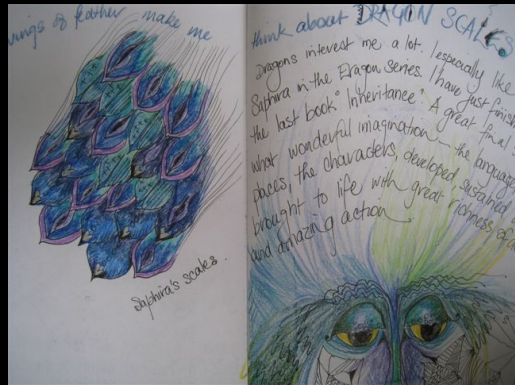 wings of feather make me
Saphira's scales.
think about DRAGON SCALES
Dragons interest me a lot. I especially like
Saphira in the Eragon series. I have just finish
the last book "Inheritance." A great final
what wonderful imagination – the language,
places, the characters, developed, sustained
brought to life with great richness of
and amazing action